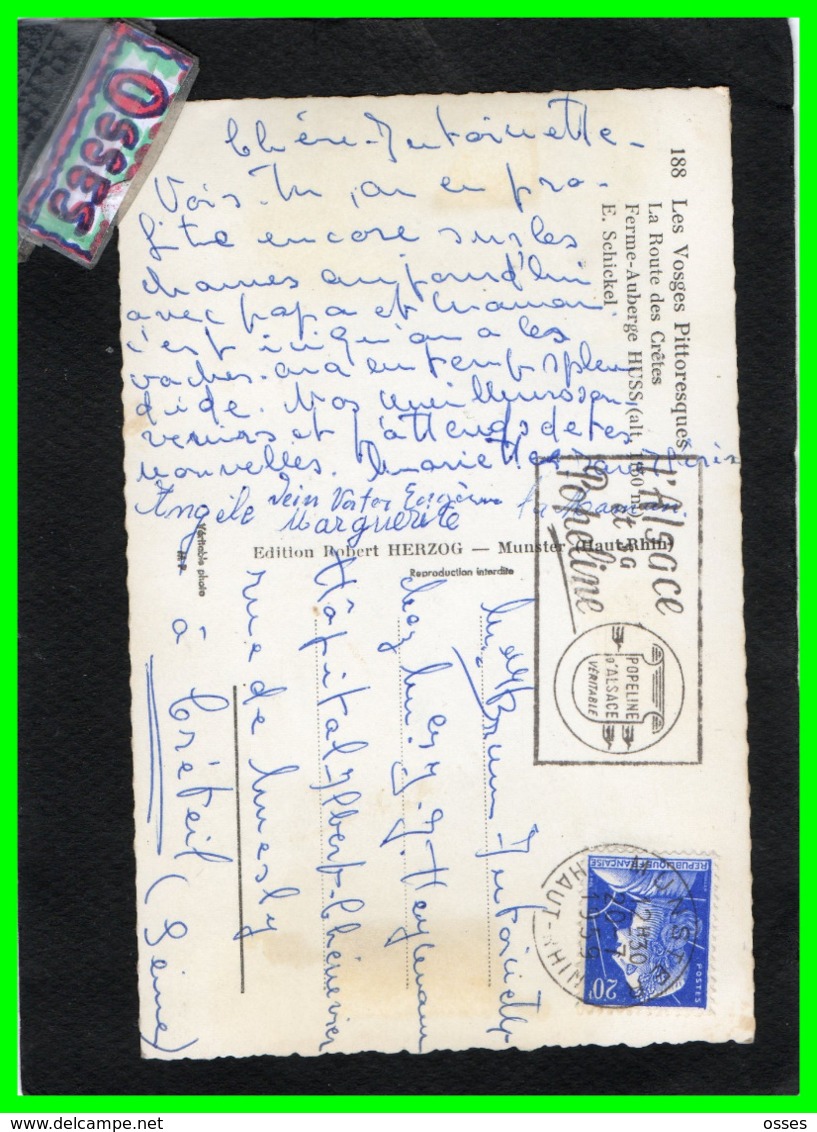 Osses
188 Les Vosges Pittoresques
La Route des Crêtes
Ferme-Auberge HUSS (alt
E. Schickel
Chère Antoinette -
Vois-tu, on en pro-
fite encore sur les
chaumes aujourd'hui
avec papa et maman.
c'est ici qu'on a les
vaches. on a un temps splen
dide. Nos meilleurs sou
venirs et j'attends de tes
nouvelles. Mariette
Angèle
Marguerite
Edition Robert HERZOG — Munster (Haut-Rhin)
Reproduction interdite
Véritable photo
L'Alsace
et sa
Popeline
POPELINE
D'ALSACE
VÉRITABLE
Antoinette
chez
Hôpital Albert-Chenevier
rue de Mesly
à Créteil (Seine)
MUNSTER
12H30
20-7
1959
HAUT-RHIN
REPUBLIQUE FRANÇAISE
POSTES
20F
www.delcampe.net
osses